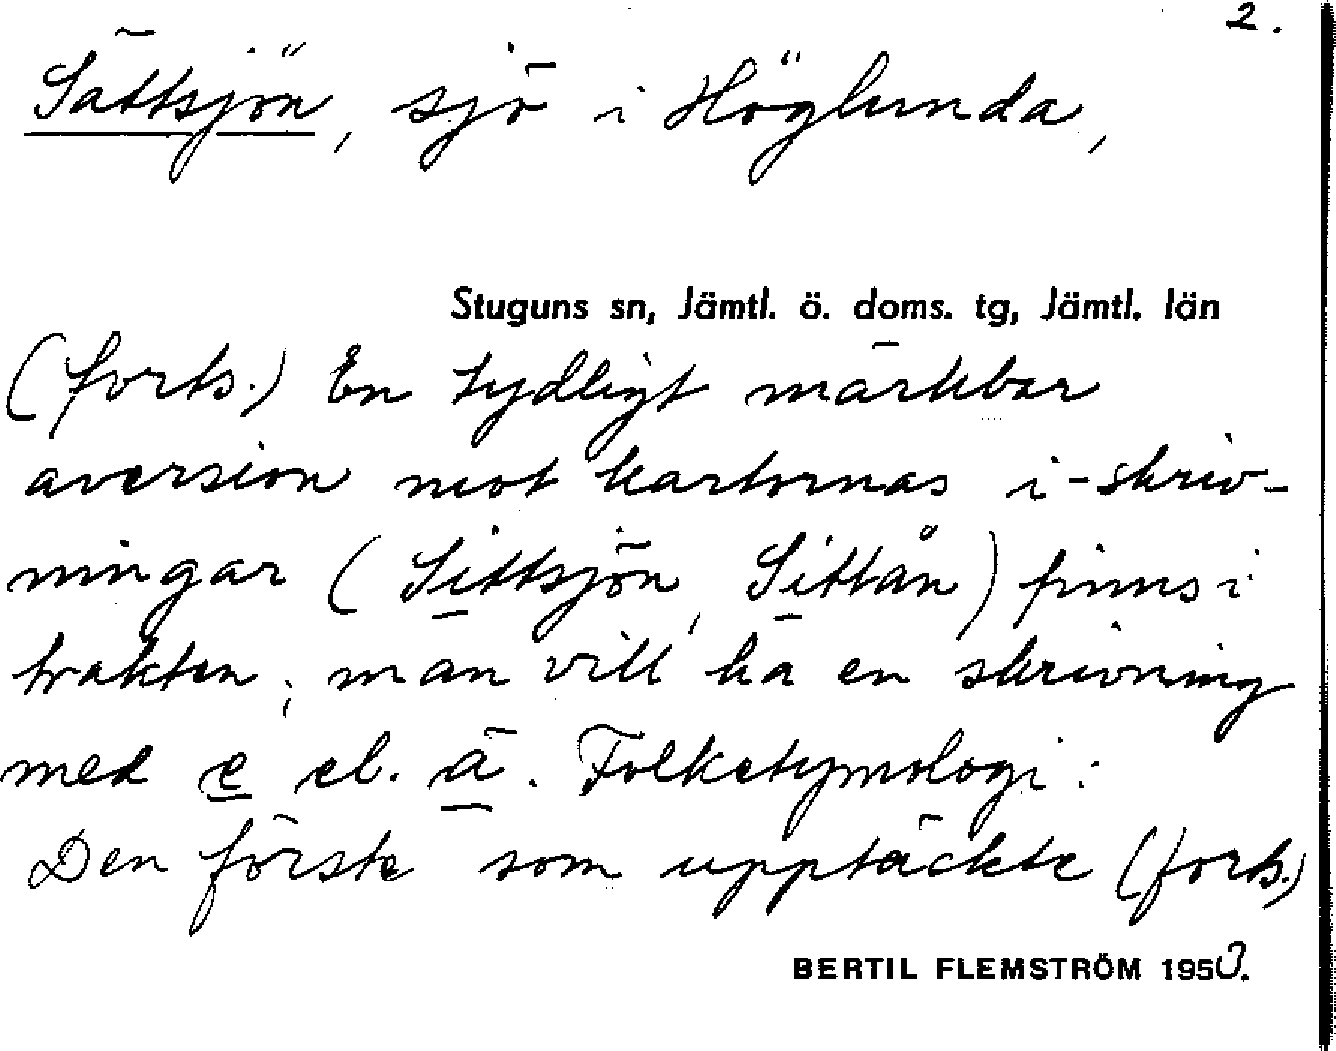 2.
Sättsjön, sjö i Höglunda,
Stuguns sn, Jämtl. ö. doms. tg, Jämtl. län
(forts.) En tydligt märkbar
aversion mot kartornas i-skriv-
ningar (Sittsjön, Sittån) finns i
trakten; man vill ha en skrivning
med e el. ä. Folketymologi:
Den förste som upptäckte (forts.)
BERTIL FLEMSTRÖM 1950.